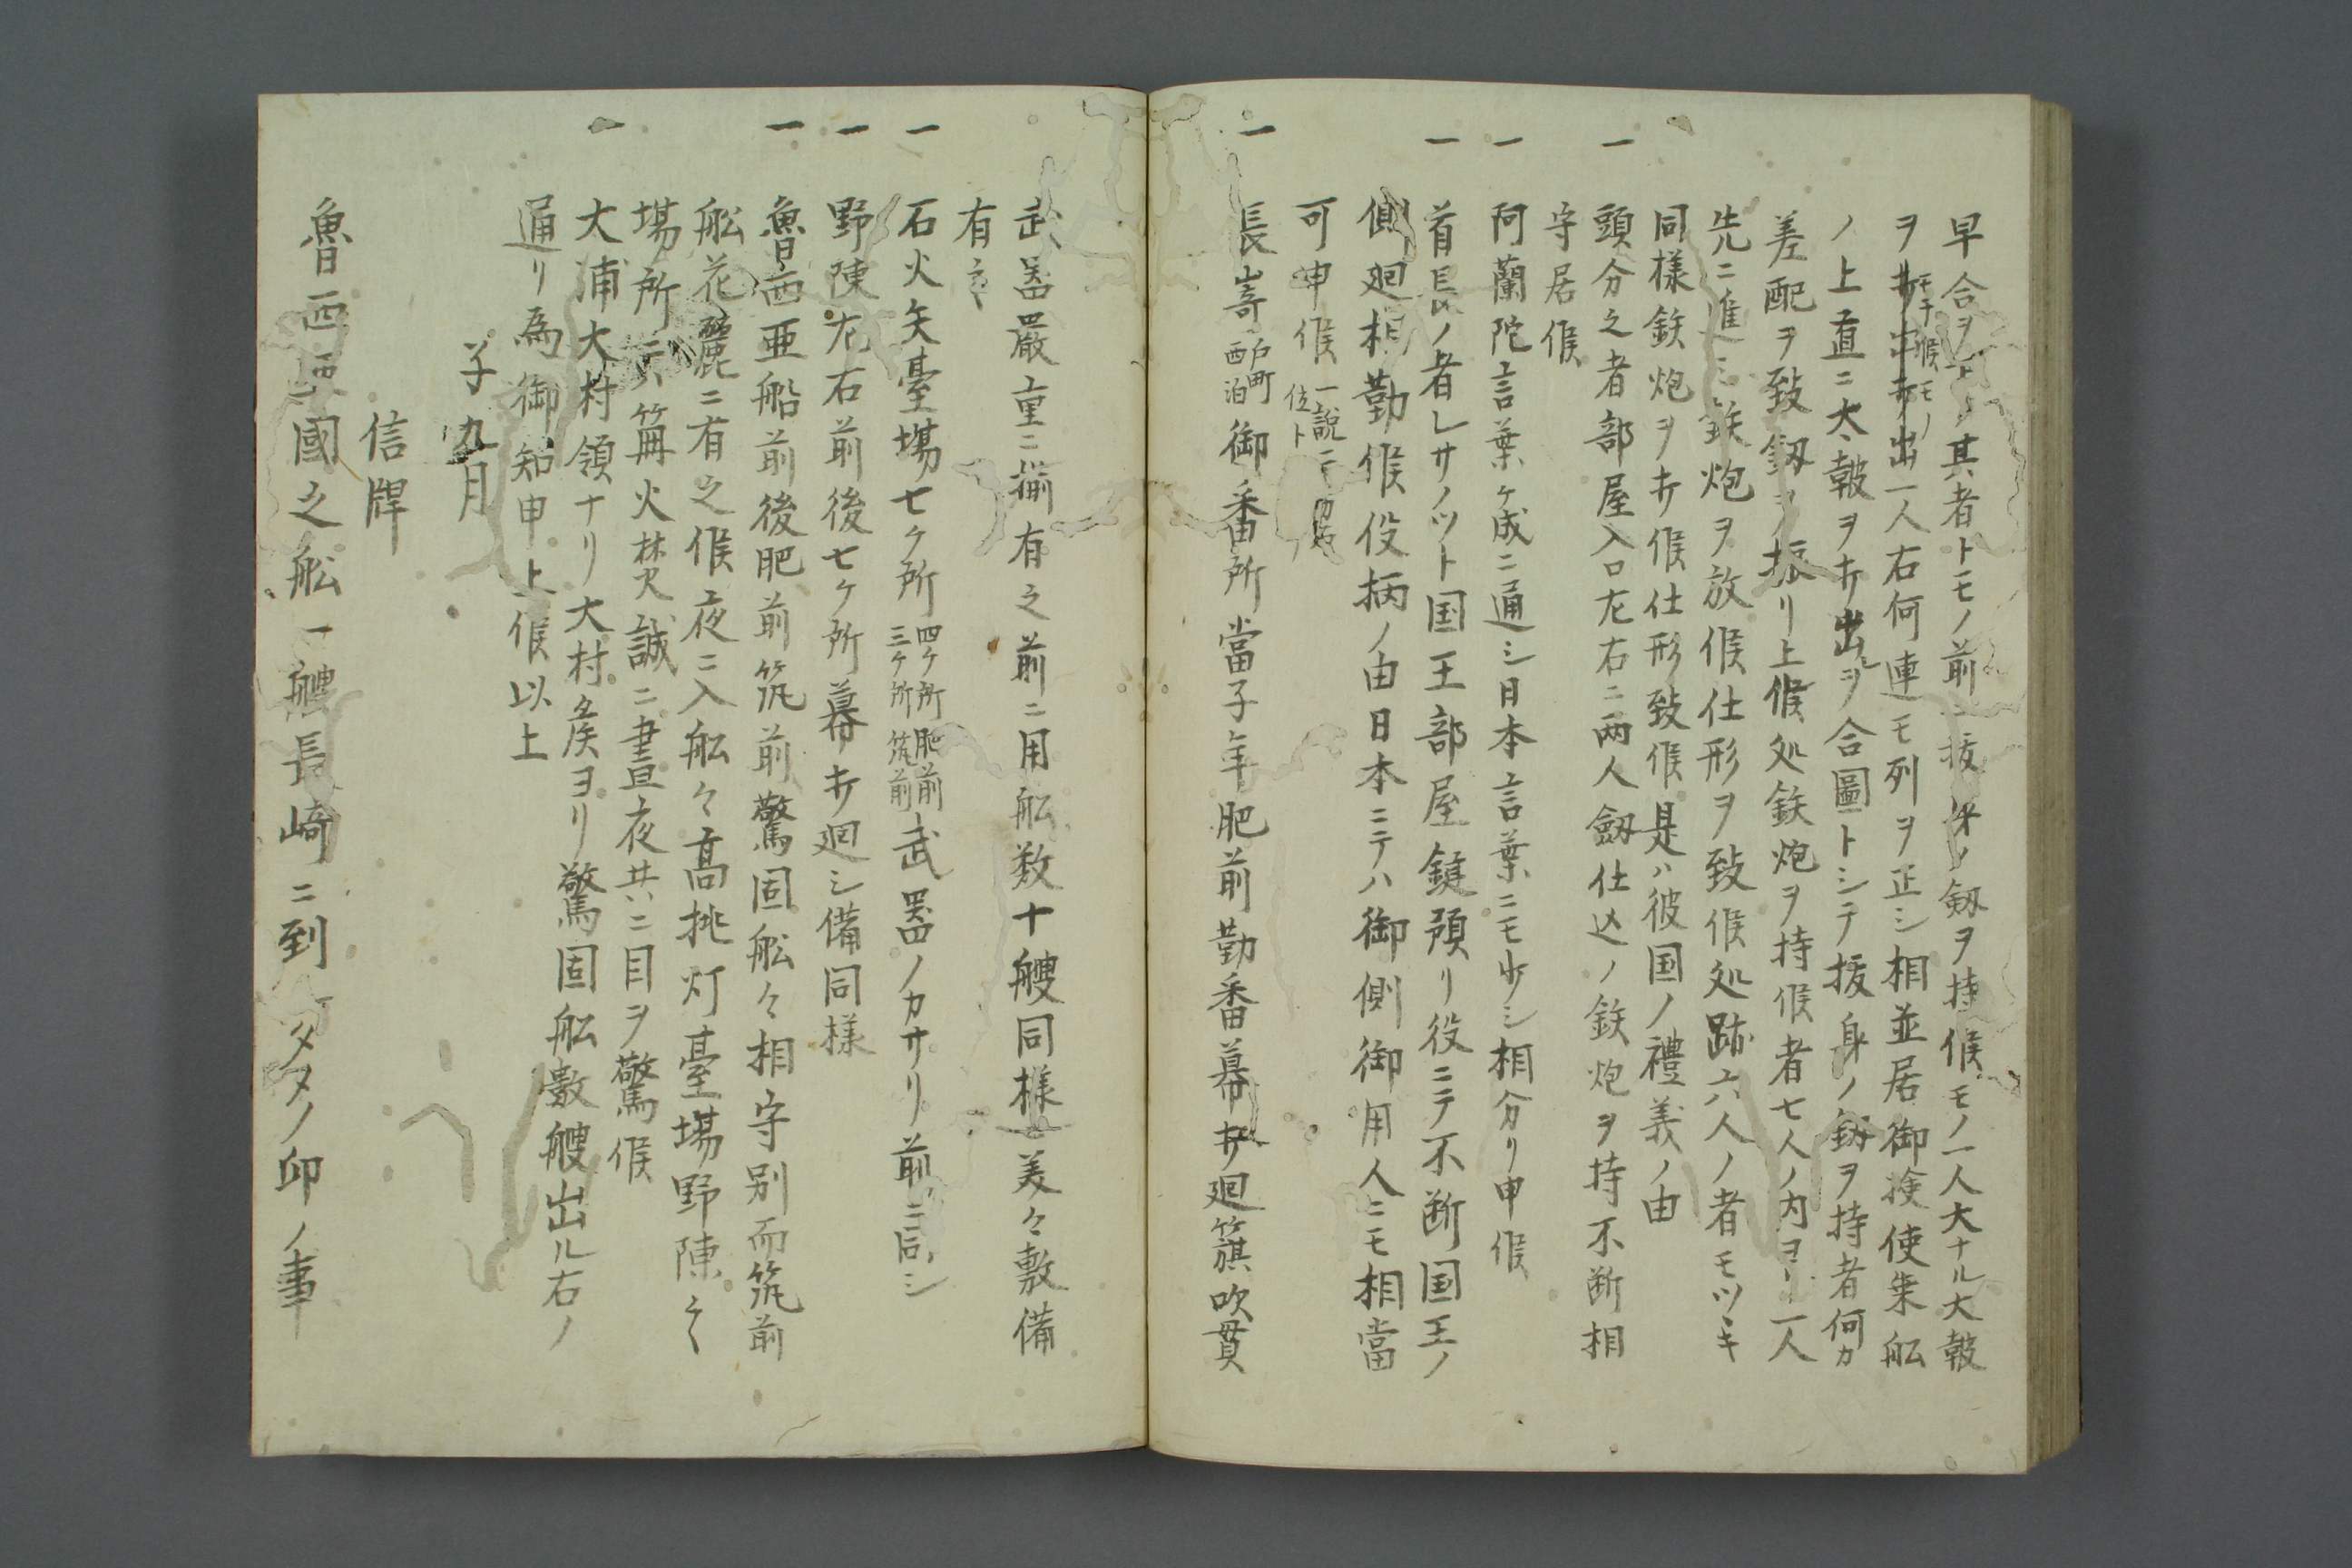 早合ヲナシ其者トモノ前ニ抜身ノ剱ヲ持候モノ一人大ナル大皷
ヲ出一人右何連モ列ヲ正シ相並居御撿使乗舩
ノ上直ニ大皷ヲ打出シヲ合圖トシテ抜身ノ剱ヲ持者何カ
差配ヲ致剱ヲ振リ上候処鉄炮ヲ持候者七人ノ内ヨリ一人
先ニ進ミ鉄炮ヲ放候仕形ヲ致候処跡六人ノ者モツヽキ
同様鉄炮ヲ打候仕形致候是ハ彼国ノ禮義ノ由
一 頭分之者部屋入口左右ニ両人劔仕込ノ鉄炮ヲ持不断相
守居候
一 阿蘭陀言葉ケ成ニ通シ日本言葉ニモ少シ相分リ申候
一 首長ノ者レサノツト国王部屋鍵預リ役ニテ不断国王ノ
側廻相勤候役柄ノ由日本ニテハ御側御用人ニモ相當
可申候 一説ニ 位ト
一 長嵜 戸町 西泊 御番所當子年肥前勤番幕打廻籏吹貫
武器嚴重ニ揃有之前ニ用舩数十艘同様美々敷備
有之
一 石火矢臺場七ケ所 四ケ所肥前 三ケ所筑前 武器ノカサリ前ニ同シ
一 野陳左右前後七ケ所幕打廻シ備同様
一 魯西亜船前後肥前筑前驚固舩々相守別而筑前
舩花麗ニ有之候夜ニ入舩々高挑灯臺場野陳々々
場所ニハ篝火焚誠ニ晝夜共ニ目ヲ驚候
一 大浦大村領ナリ大村矦ヨリ驚固舩數艘出ル右ノ
通リ為御知申上候以上
子九月
信牌
魯西亜國之舩一艘長崎ニ到ルタメノ印ノ事